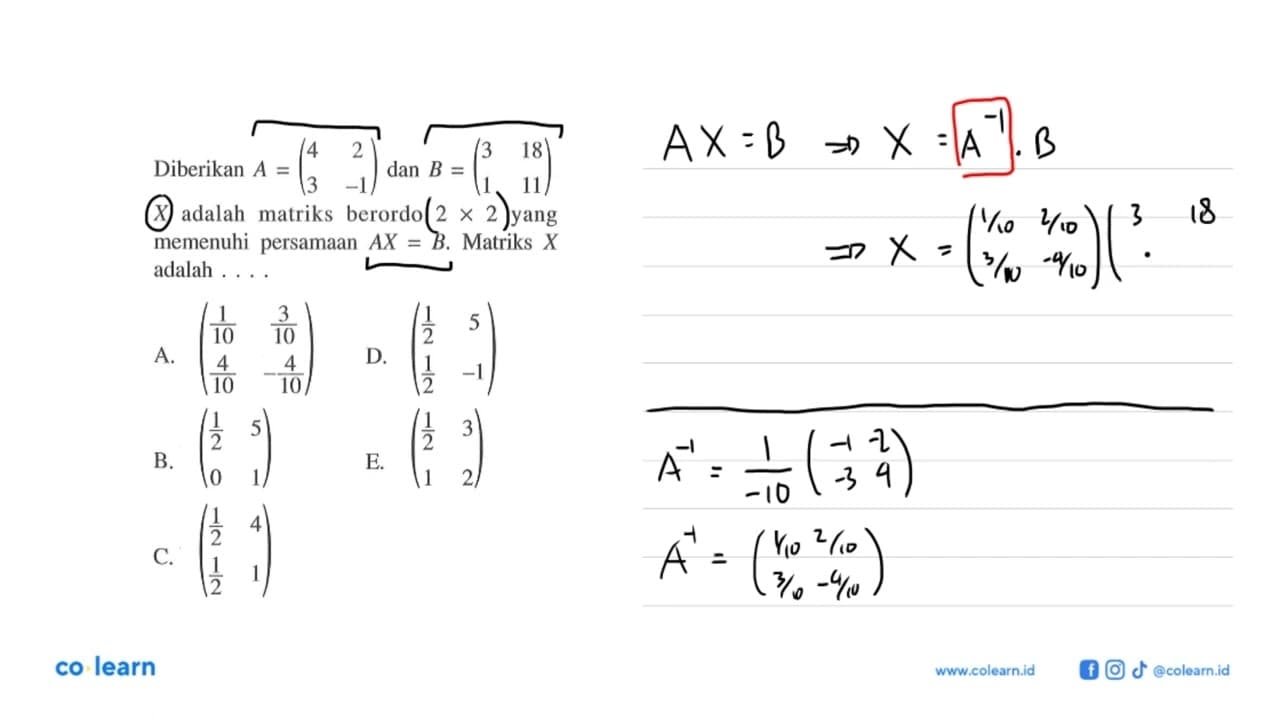 Diberikan A = (4 2
3 –1) dan B = (3 18
1 11)
X adalah matriks berordo (2 × 2) yang
memenuhi persamaan AX = B. Matriks X
adalah . . . .
A. (1/10 3/10
4/10 -4/10)
B. (1/2 5
0 1)
C. (1/2 4
1/2 1)
D. (1/2 5
1/2 –1)
E. (1/2 3
1 2)
AX = B ⇒ X = A⁻¹ . B
⇒ X = (1/10 2/10
3/10 -4/10) (3 18
.
A⁻¹ = 1/-10 (-1 -2
-3 4)
A⁻¹ = (1/10 2/10
3/10 -4/10)
co·learn
www.colearn.id
@colearn.id